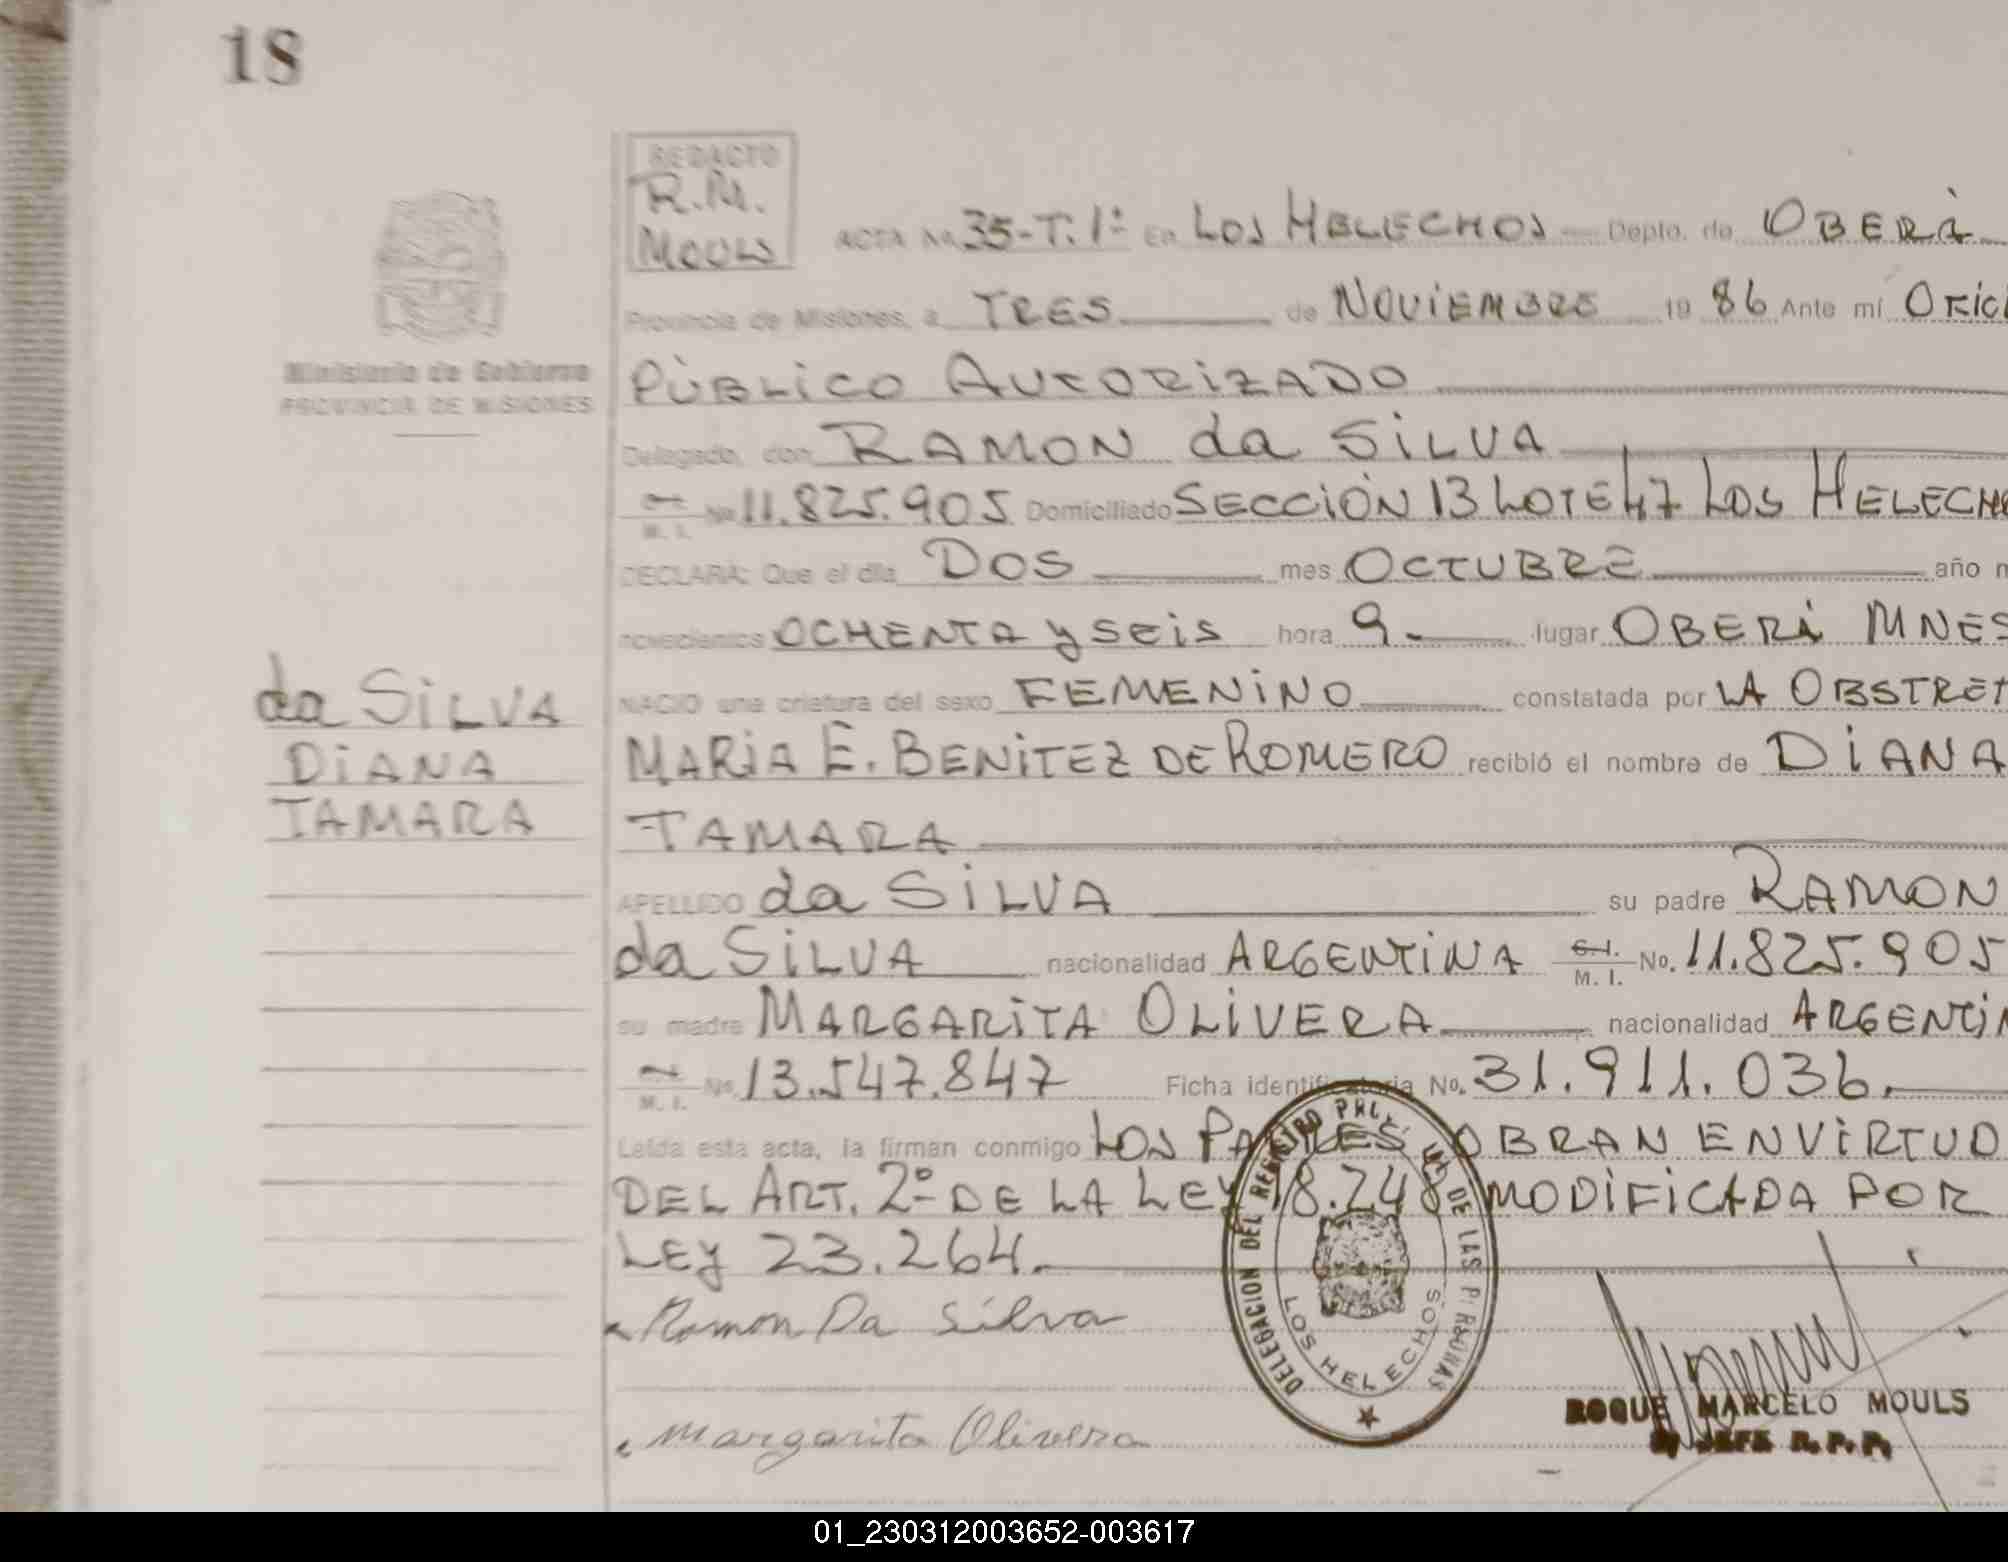 18
REDACTO
R.M.
MOULS
ACTA No. 35-T. 1º En LOS HELECHOS Depto. de OBERÁ
Provincia de Misiones, a TRES de NOVIEMBRE 19 86 Ante mí OFICI
Ministerio de Gobierno
PROVINCIA DE MISIONES
PÙBLICO AUTORIZADO
Delegado, don RAMON da SILVA
M. I. No. 11.825.905 Domiciliado SECCIÓN 13 LOTE 47 LOS HELECHO
DECLARA: Que el día DOS mes OCTUBRE año m
novecientos OCHENTA y SEIS hora 9.- lugar OBERÁ MNES
NACIO una criatura del sexo FEMENINO constatada por LA OBSTRET
da SILVA
DIANA
TAMARA
MARIA E. BENITEZ DE ROMERO recibió el nombre de DIANA
TAMARA
APELLIDO da SILVA su padre RAMON
da SILVA nacionalidad ARGENTINA C.I. M. I. No. 11.825.905
su madre MARGARITA OLIVERA nacionalidad ARGENTIN
M. I. No. 13.547.847 Ficha identificatoria No. 31.911.036.
Leída esta acta, la firman conmigo LOS PADRES OBRAN EN VIRTUD
DEL ART. 2º DE LA LEY 18.248 MODIFICADA POR
LEY 23.264.
Ramon Da Silva
Margarita Olivera
DELEGACION DEL REGISTRO DE LAS PERSONAS
LOS HELECHOS
ROQUE MARCELO MOULS
JEFE R.P.P.
01_230312003652-003617